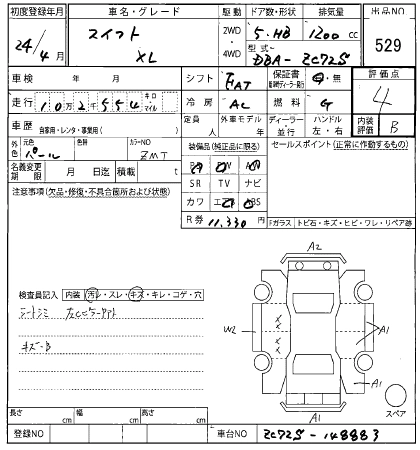 初度登録年月 車名・グレード 駆動 ドア数・形状 排気量 出品NO
24/4月 スイフト XL 2WD・4WD 5・HB 1200 cc 529
型式 DBA- ZC72S
車検 年 月 シフト FAT 保証書 有・無 評価点
走行 10万2千554 キロ・マイル 冷房 AC 燃料 G 4
車歴 自家用・レンタ・事業用( ) 定員 人 外車モデル 年 ディーラー 並行 ハンドル 左・右 内装評価 B
外色 元色 パール 色替 カラーNO ZMT 装備品(純正品に限る) セールスポイント(正常に作動するもの)
名義変更期限 月 日迄 積載 t
SR TV ナビ
注意事項(欠品・修復・不具合箇所および状態) カワ エアB ABS
R券 11,330円 Fガラス トビ石・キズ・ヒビ・ワレ・リペア跡
A2
検査員記入 内装 汚レ・スレ・キズ・キレ・コゲ・穴
シートシミ
キズ-B
W2 A1
A1
A1
スペア
長さ cm 幅 cm 高さ cm
登録NO 車台NO ZC72S-148883